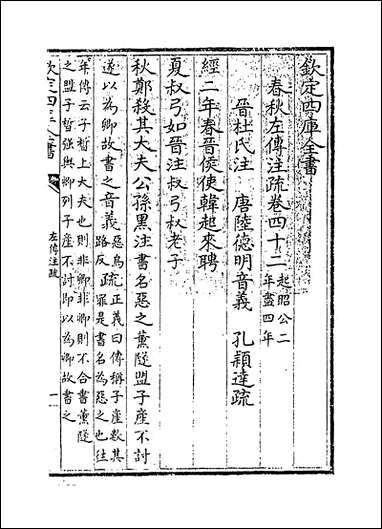 欽定四庫全書
春秋左傳注疏卷四十二
起昭公二
年盡四年
晉杜氏注　唐陸德明音義　孔穎達疏
經二年春晉侯使韓起來聘
夏叔弓如晉注叔弓叔老子
秋鄭殺其大夫公孫黑注書名惡之薰隧盟子產不討
遂以為卿故書之音義
惡烏
路反
疏
正義曰傳稱子產數其
罪是書名為惡之也往
年傳云子晳上大夫也則非卿非卿則不合書薰隧
之盟子晳強與卿列子產不討即以為卿故書之
欽定四庫全書
左傳注疏
一